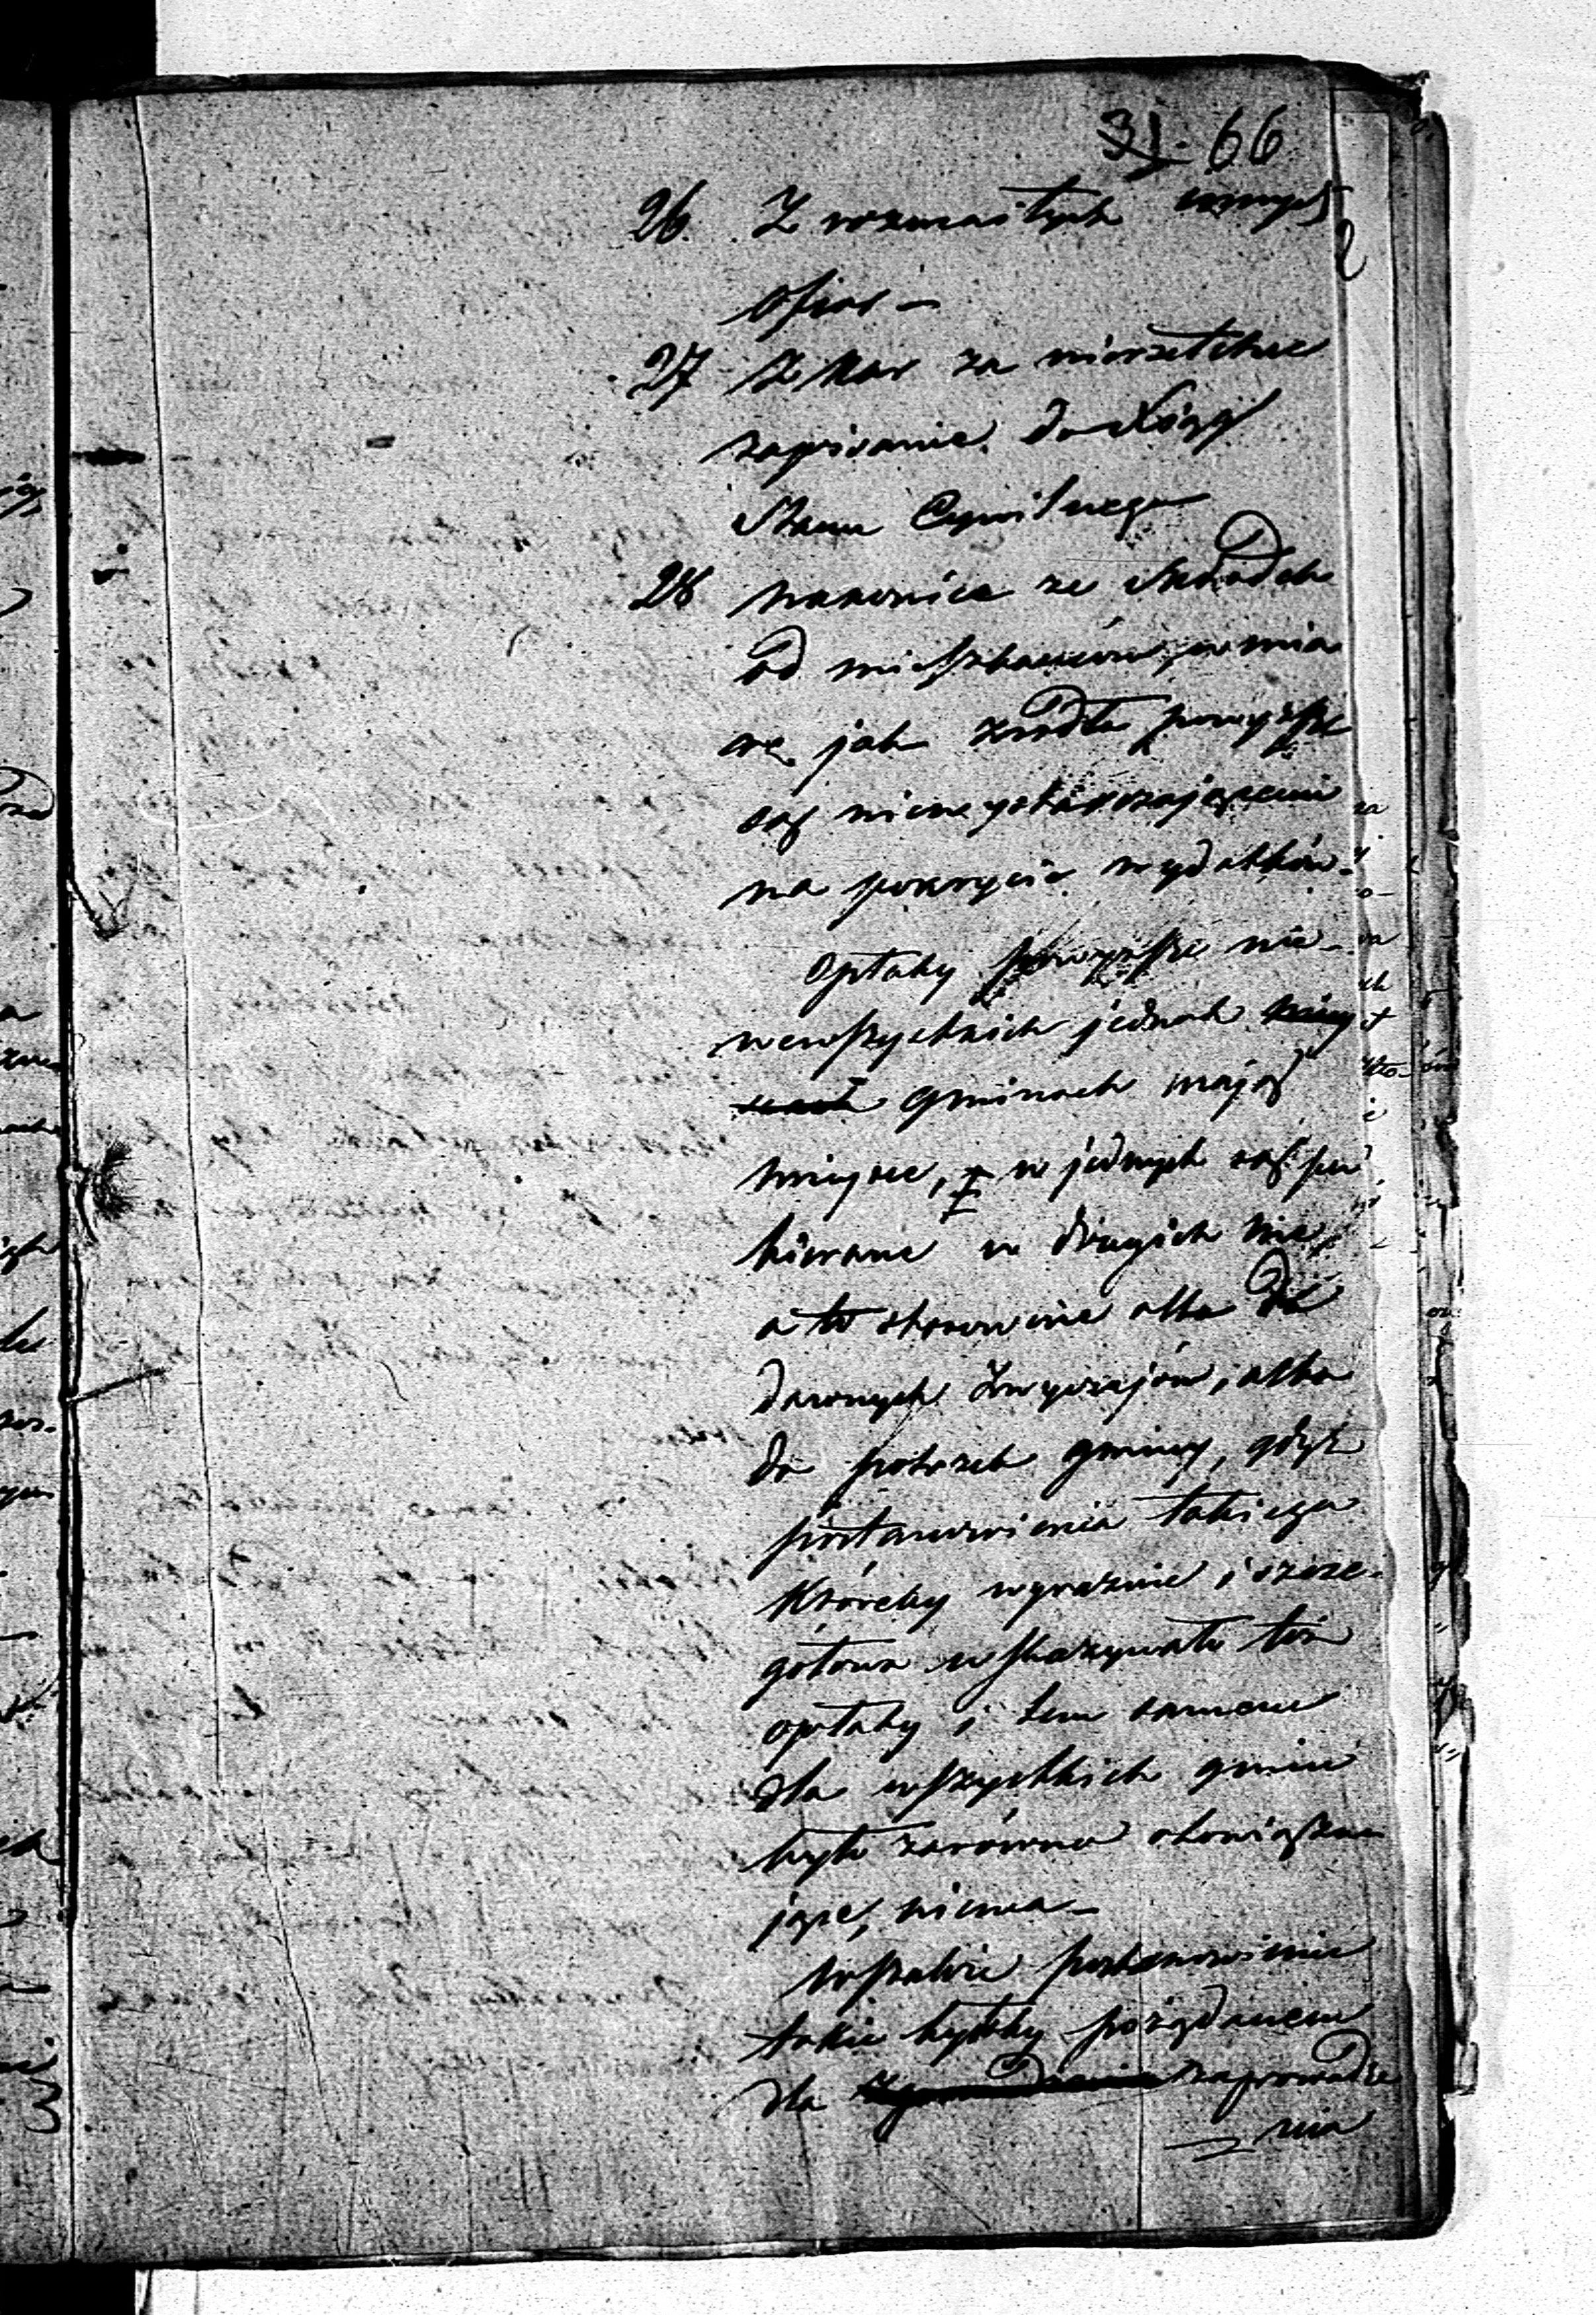 31. 66
26. Z rozmaitych innych
ofiar —
27 Z kar za nierzetelne
zapisanie do Xiąg
Stanu Cywilnego
28 nakoniec ze składek
od mieszkańców, w mia
rę jak źrodła powyższe
są niewystarczającemi
na pokrycie wydatków.
Opłaty powyższe nie
wewszystkich jednak
gminach mają
mieysce, w jednych są po
bierane w drugich nie,
a to stosownie albo do
dawnych zwyczajów, albo
do potrzeb gminy, gdyż
postanowienia takiego
któreby wyraznie i szcze-
gółowo wskazywało też
opłaty i tem samem
dla wszystkich gmin
było zarówno obowiązu
jące, niema —
Wszakże postanowienie
takie byłoby pożądanem
dla zaprowadze
nia